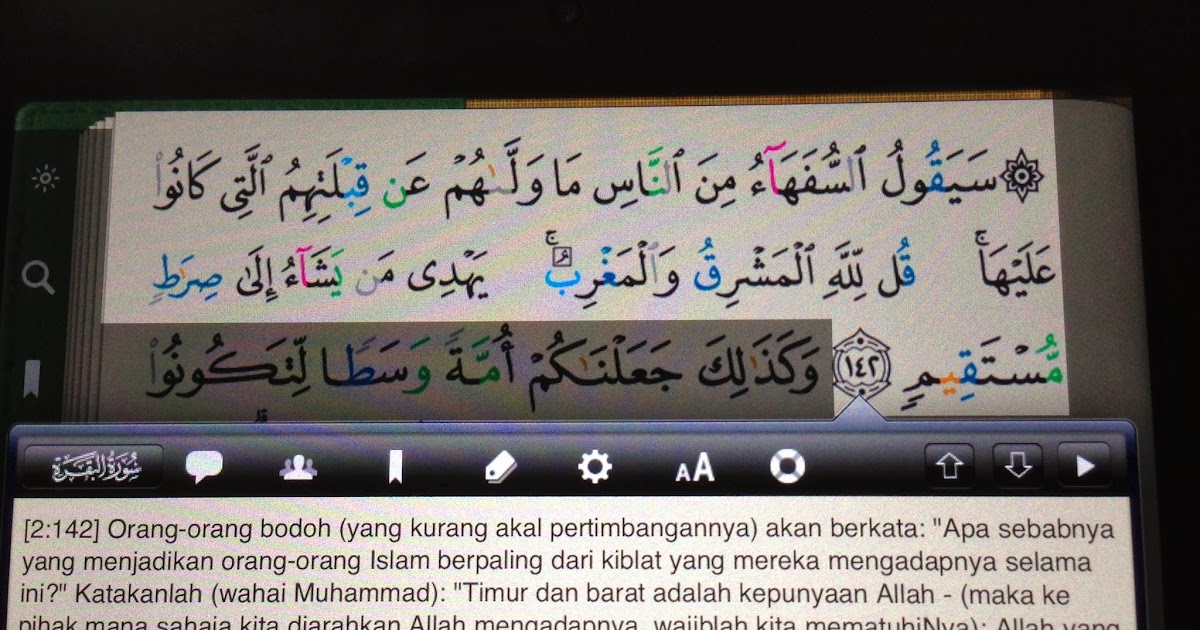 ۞ سَيَقُولُ ٱلسُّفَهَآءُ مِنَ ٱلنَّاسِ مَا وَلَّىٰهُمْ عَن قِبْلَتِهِمُ ٱلَّتِى كَانُوا۟
عَلَيْهَا ۚ قُل لِّلَّهِ ٱلْمَشْرِقُ وَٱلْمَغْرِبُ ۚ يَهْدِى مَن يَشَآءُ إِلَىٰ صِرَٰطٍ
مُّسْتَقِيمٍ ١٤٢ وَكَذَٰلِكَ جَعَلْنَٰكُمْ أُمَّةً وَسَطًا لِّتَكُونُوا۟
سُورَةُ البَقَرَة
AA
[2:142] Orang-orang bodoh (yang kurang akal pertimbangannya) akan berkata: "Apa sebabnya
yang menjadikan orang-orang Islam berpaling dari kiblat yang mereka mengadapnya selama
ini?" Katakanlah (wahai Muhammad): "Timur dan barat adalah kepunyaan Allah - (maka ke
pihak mana sahaja kita diarahkan Allah mengadapnya, wajiblah kita mematuhiNya); Allah yang